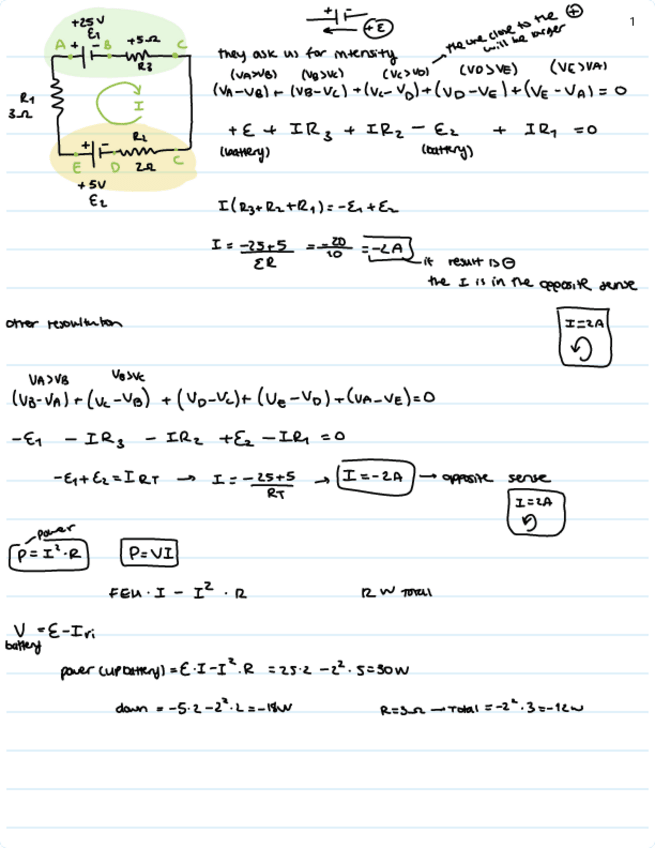 1
+25V
ε₁
A + - B +5Ω C
R₃
R₁
3Ω
I
R₂
E + - D 2Ω C
+5V
ε₂
+ -
← +ε
they ask us for intensity
the one close to the ⊕
will be larger
(VA>VB) (VB>VC) (VC>VD) (VD>VE) (VE>VA)
(VA-VB) + (VB-VC) + (VC-VD) + (VD-VE) + (VE-VA) = 0
+ε + IR₃ + IR₂ - ε₂ + IR₁ = 0
(battery) (battery)
I(R₃+R₂+R₁) = -ε₁+ε₂
I = -25+5/ΣR = -20/10 = -2A
if result is ⊖
the I is in the opposite sense
I=2A
other
VA>VB VB>VC
(VB-VA) + (VC-VB) + (VD-VC) + (VE-VD) + (VA-VE) = 0
-ε₁ - IR₃ - IR₂ + ε₂ - IR₁ = 0
-ε₁+ε₂ = IRT → I = -25+5/RT → I=-2A → opposite sense
I=2A
power
P=I²·R P=VI
FEM·I - I²·R R W total
V = ε-Iri
battery
power (up battery) = ε·I-I²·R = 25·2 -2²·5=30W
down = -5·2-2²·2=-18W R=3Ω → Total = -2²·3=-12W